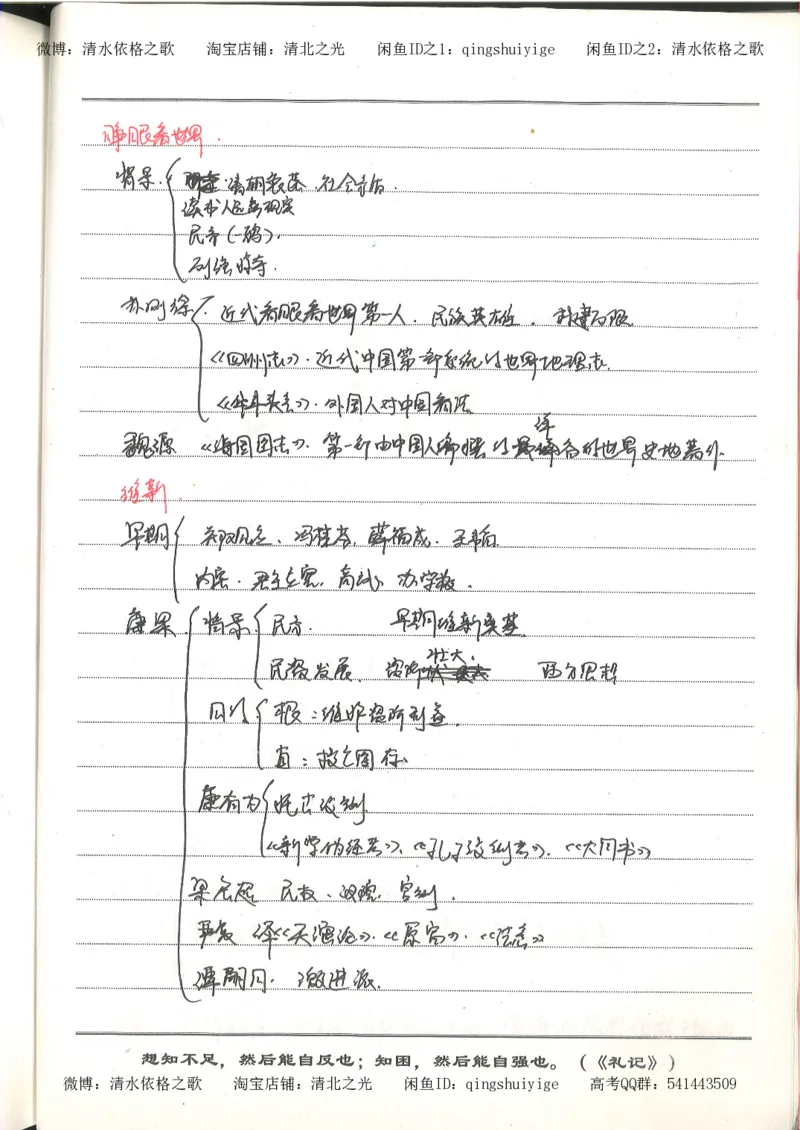 微博：清水依格之歌 淘宝店铺：清北之光 闲鱼ID之1：qingshuiyige 闲鱼ID之2：清水依格之歌
睁眼看世界.
背景. 清朝衰落 社会矛盾.
读书人远离现实
民齐(一鸦).
列强 
林则徐 近代睁眼看世界第一人. 民族英雄.
《四洲志》. 近代中国第一部系统的世界地理志.
外国人对中国看法
魏源 《海国图志》. 第一部由中国人编撰的 详备的世界史地著作.
维新.
早期 郑观应、冯桂芬、薛福成. 王韬
内容. 君主立宪, 商战, 办学校.
康梁 背景 民齐. 早期维新奠基.
民资发展. 资阶 壮大. 西方思想
目的 根：维护资阶利益.
直：救亡图存.
康有为 托古改制
《新学伪经考》、《孔子改制考》. 《大同书》
梁启超 民权、议院, 官制.
严复 译《天演论》. 《原富》. 《法意》
谭嗣同. 激进派.
想知不足，然后能自反也；知困，然后能自强也。（《礼记》）
微博：清水依格之歌 淘宝店铺：清北之光 闲鱼ID：qingshuiyige 高考QQ群：541443509